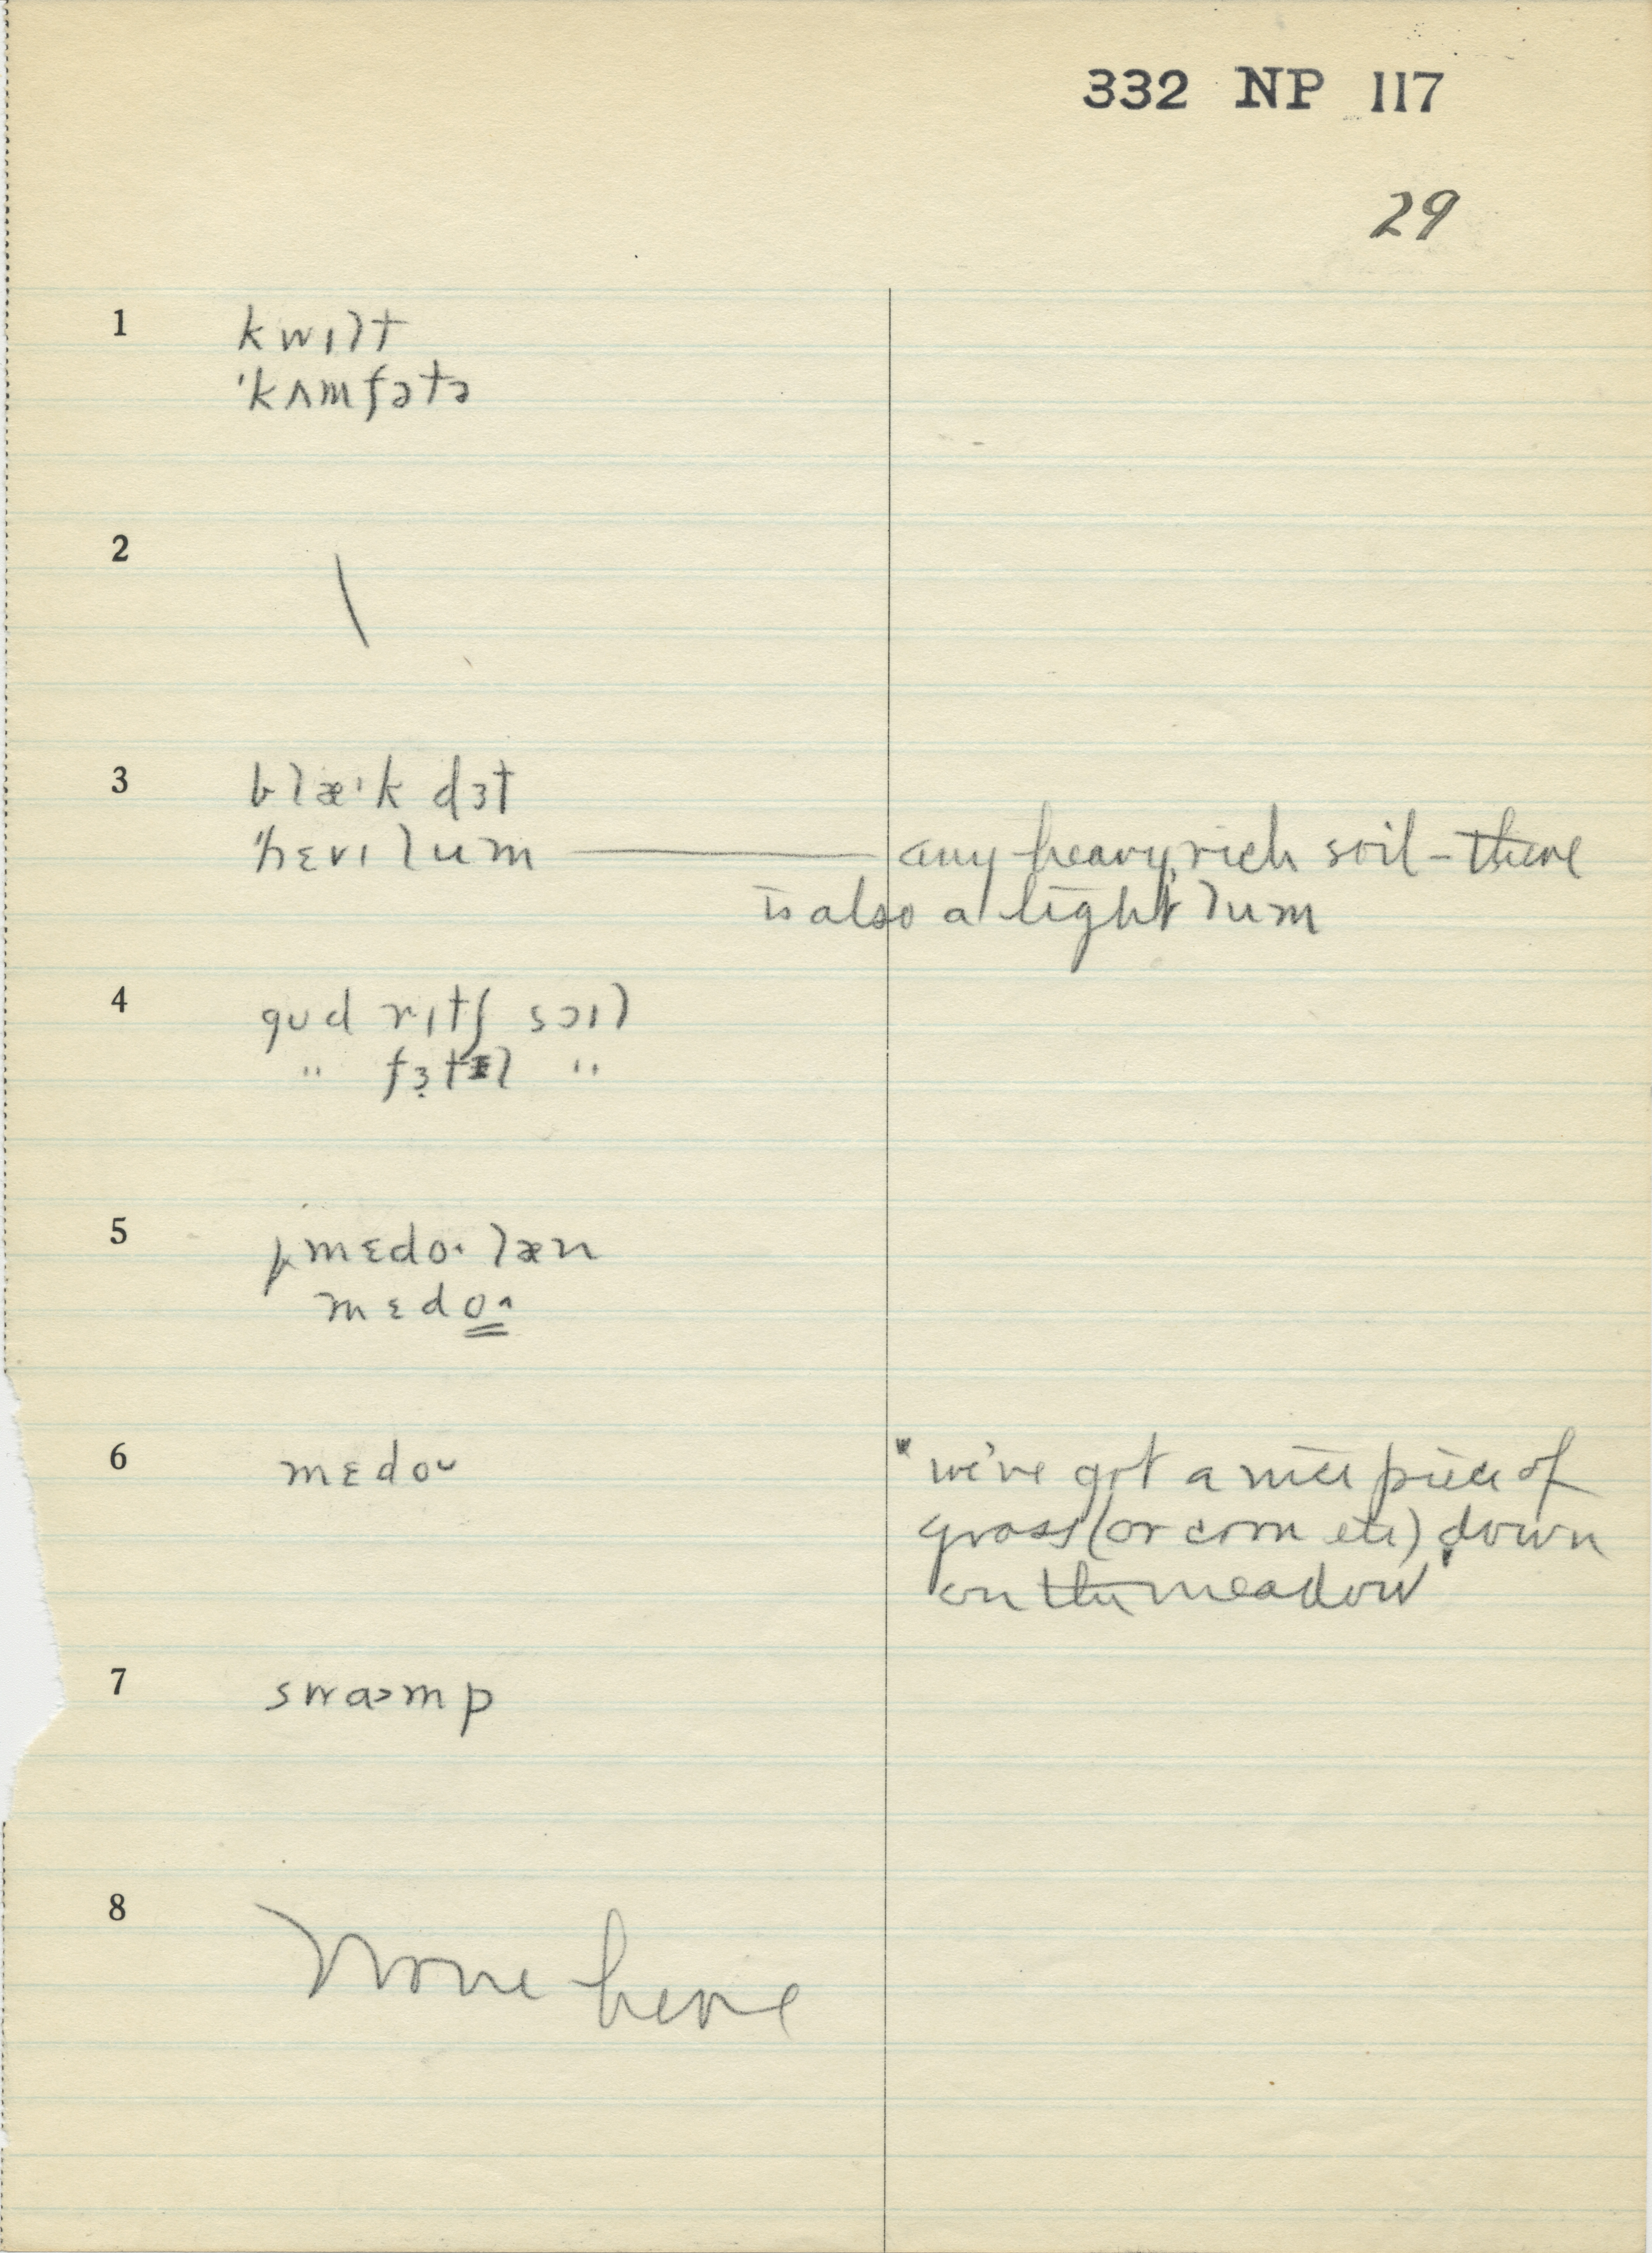 332 NP 117
29
1 kwɪlt
'kʌmfətə
2 \
3 blæ'k dɜt
'hɛvɪ lum — any heavy, rich soil – there
is also a light lum
4 gʊd rɪtʃ sɔɪl
" fɜtɪl "
5 mɛdo˄ læn
mɛdo˄
6 mɛdo˅ "we've got a nice piece of
grass (or corn etc) down
on the meadow"
7 swɑ>mp
8 None here